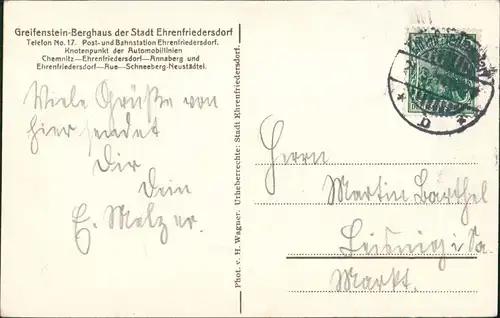 Greifenstein-Berghaus der Stadt Ehrenfriedersdorf
Telefon No. 17. Post- und Bahnstation Ehrenfriedersdorf.
Knotenpunkt der Automobillinien
Chemnitz—Ehrenfriedersdorf—Annaberg und
Ehrenfriedersdorf—Aue—Schneeberg-Neustädtel.
Viele Grüße von
hier sendet
Dir
Dein
E. Melzer.
Phot. v. H. Wagner. Urheberrechte: Stadt Ehrenfriedersdorf.
Herrn
Martin Barthel
Leisnig i. Sa.
Markt.
b